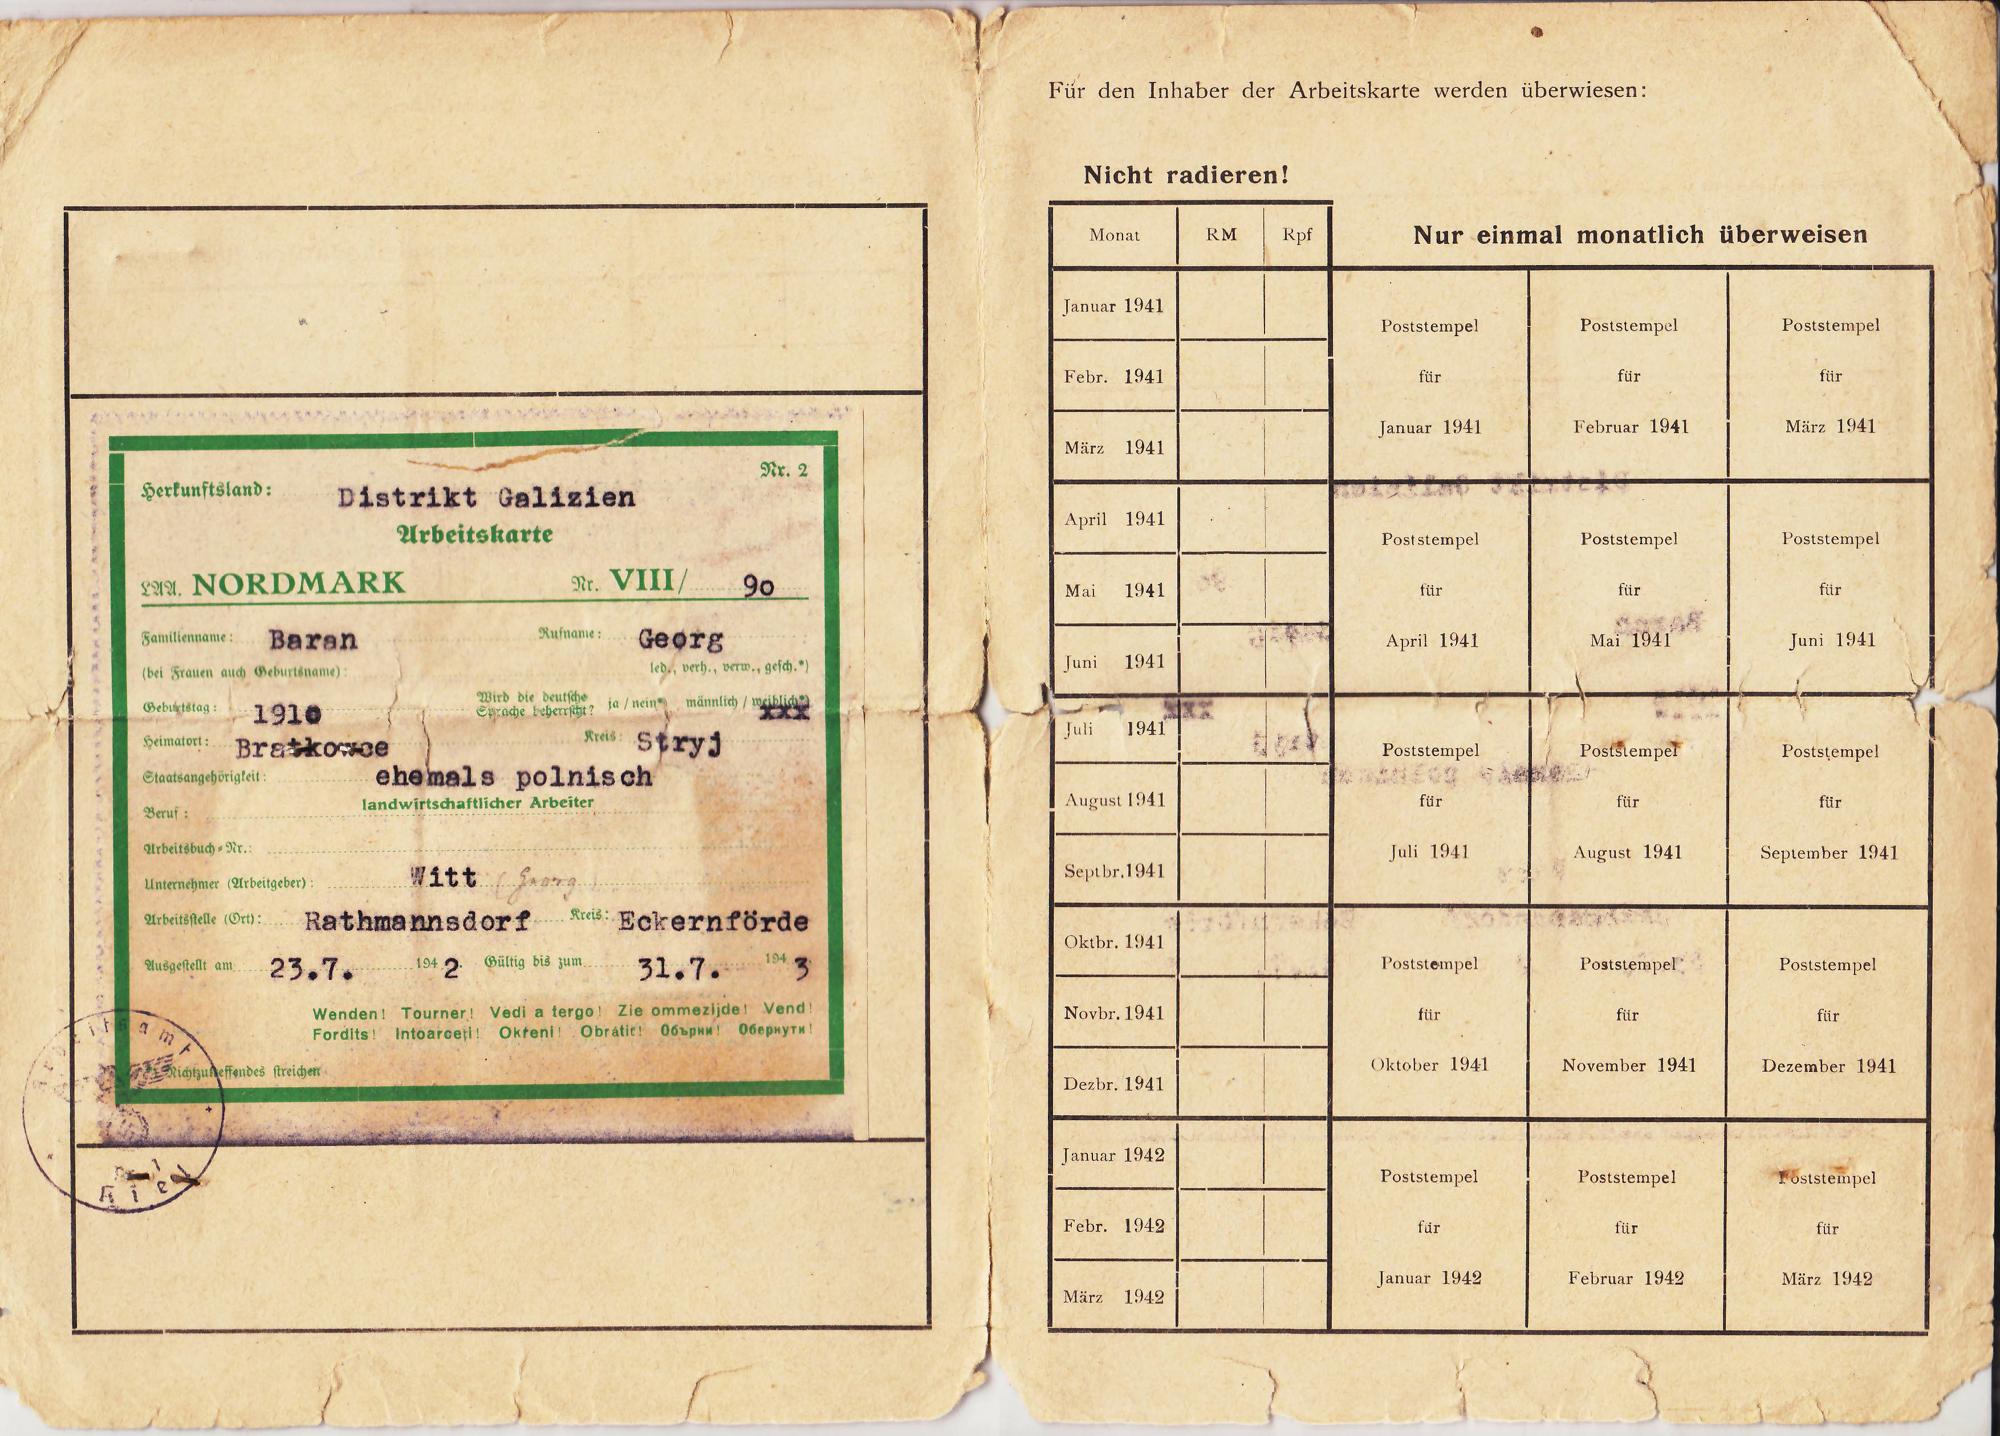 Herkunftsland: Distrikt Galizien Nr. 2
Arbeitskarte
LAA. NORDMARK Nr. VIII/ 90
Familienname: Baran Rufname: Georg
(bei Frauen auch Geburtsname): led., verh., verw., gesch.*)
Geburtstag: 1910 Wird die deutsche Sprache beherrscht? ja / nein*) männlich / weiblich*)
xxx
Heimatort: Bratkowce Kreis: Stryj
Staatsangehörigkeit: ehemals polnisch
Beruf: landwirtschaftlicher Arbeiter
Arbeitsbuch-Nr.:
Unternehmer (Arbeitgeber): Witt (Georg)
Arbeitsstelle (Ort): Rathmannsdorf Kreis: Eckernförde
Ausgestellt am 23.7. 1942 Gültig bis zum 31.7. 1943
Wenden! Tourner! Vedi a tergo! Zie ommezijde! Vend!
Fordits! Intoarceţi! Okřeni! Obrátit! Объpни! Обернути!
Nichtzutreffendes streichen
Arbeitsamt
Kiel
Für den Inhaber der Arbeitskarte werden überwiesen:
Nicht radieren!
Monat RM Rpf
Nur einmal monatlich überweisen
Januar 1941
Febr. 1941
März 1941
Poststempel für Januar 1941
Poststempel für Februar 1941
Poststempel für März 1941
April 1941
Mai 1941
Juni 1941
Poststempel für April 1941
Poststempel für Mai 1941
Poststempel für Juni 1941
Juli 1941
August 1941
Septbr. 1941
Poststempel für Juli 1941
Poststempel für August 1941
Poststempel für September 1941
Oktbr. 1941
Novbr. 1941
Dezbr. 1941
Poststempel für Oktober 1941
Poststempel für November 1941
Poststempel für Dezember 1941
Januar 1942
Febr. 1942
März 1942
Poststempel für Januar 1942
Poststempel für Februar 1942
Poststempel für März 1942